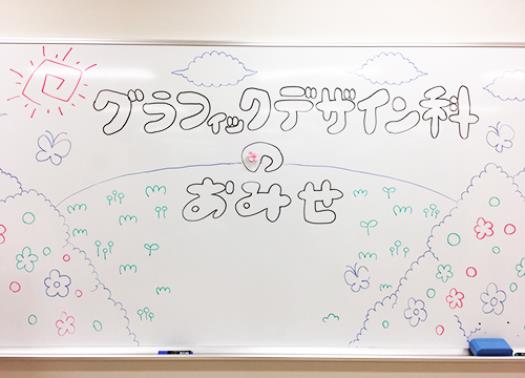 グラフィックデザイン科
の
おみせ